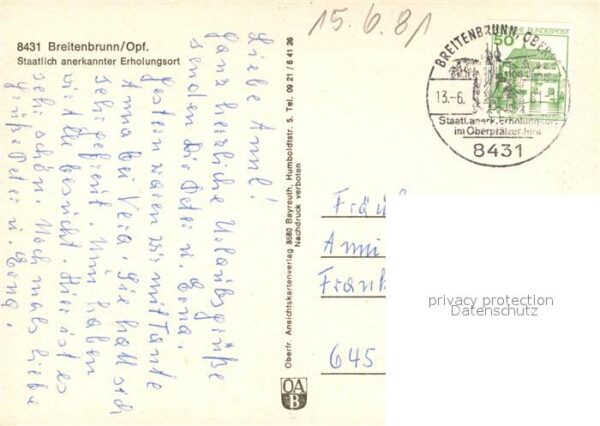 8431 Breitenbrunn/Opf.
Staatlich anerkannter Erholungsort
15.6.81
Liebe Anni!
Ganz herzliche Urlaubsgrüße
senden Dir Peter u. Lona.
Gestern waren wir mit Tante
Anna bei Vera. Sie hat sich
sehr gefreut. Nun haben
wir Alle besucht. Hier ist es
sehr schön. Nochmals liebe
Grüße Peter u. Lona.
Oberfr. Ansichtskartenverlag 8580 Bayreuth, Humboldtstr. 5, Tel. 09 21 / 6 41 26
Nachdruck verboten
OA
B
BREITENBRUNN, OBER
13.-6.
Staatl. anerk. Erholungsort
im Oberpfälzer Jura
8431
50
BUNDESPOST
Fräu
Anni
Frank
645
privacy protection
Datenschutz